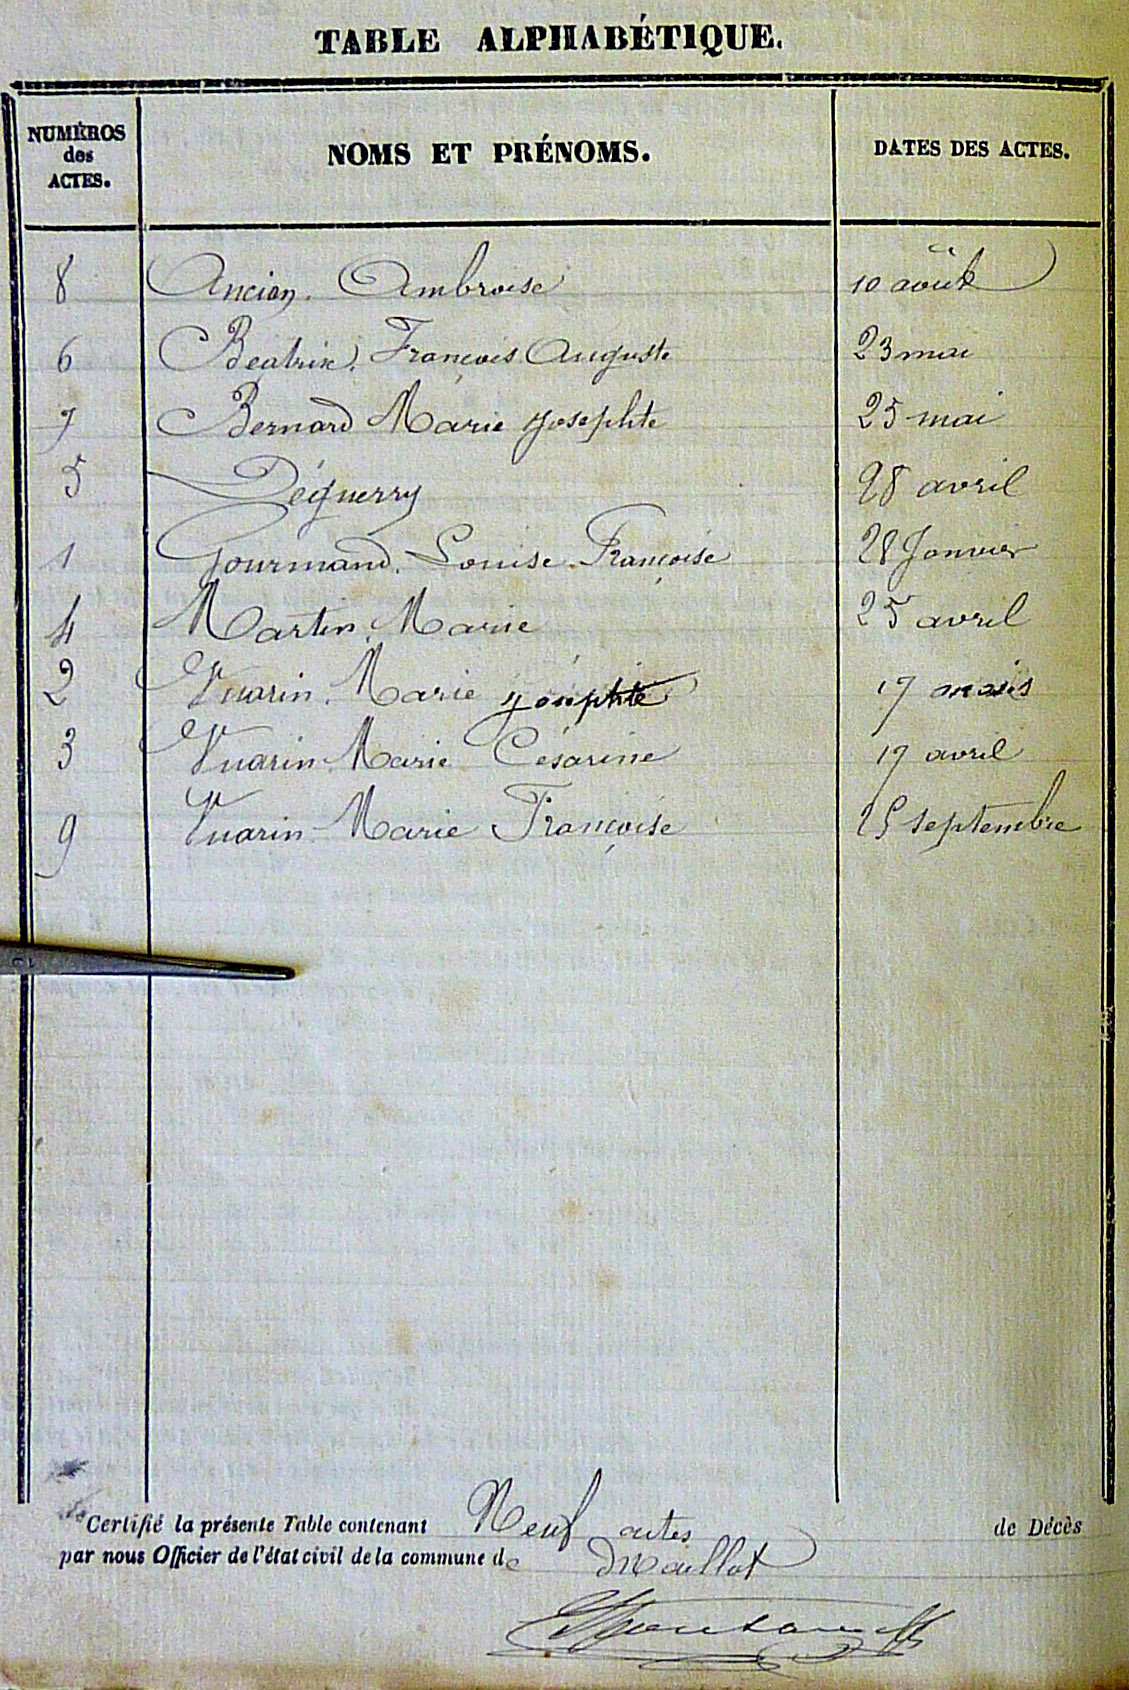 TABLE ALPHABÉTIQUE.
NUMÉROS des ACTES. NOMS ET PRÉNOMS. DATES DES ACTES.
8 Ancian. Ambroise 10 août
6 Béatrix. François Auguste 23 mai
7 Bernard Marie Josephte 25 mai
5 Déguerry 28 avril
1 Gourmand. Louise Françoise 28 Janvier
4 Martin. Marie 25 avril
2 Vuarin. Marie Joséphte 17 mars
3 Vuarin Marie Césarine 17 avril
9 Vuarin Marie Françoise 25 septembre
Certifié la présente Table contenant Neuf actes de Décès
par nous Officier de l'état civil de la commune de